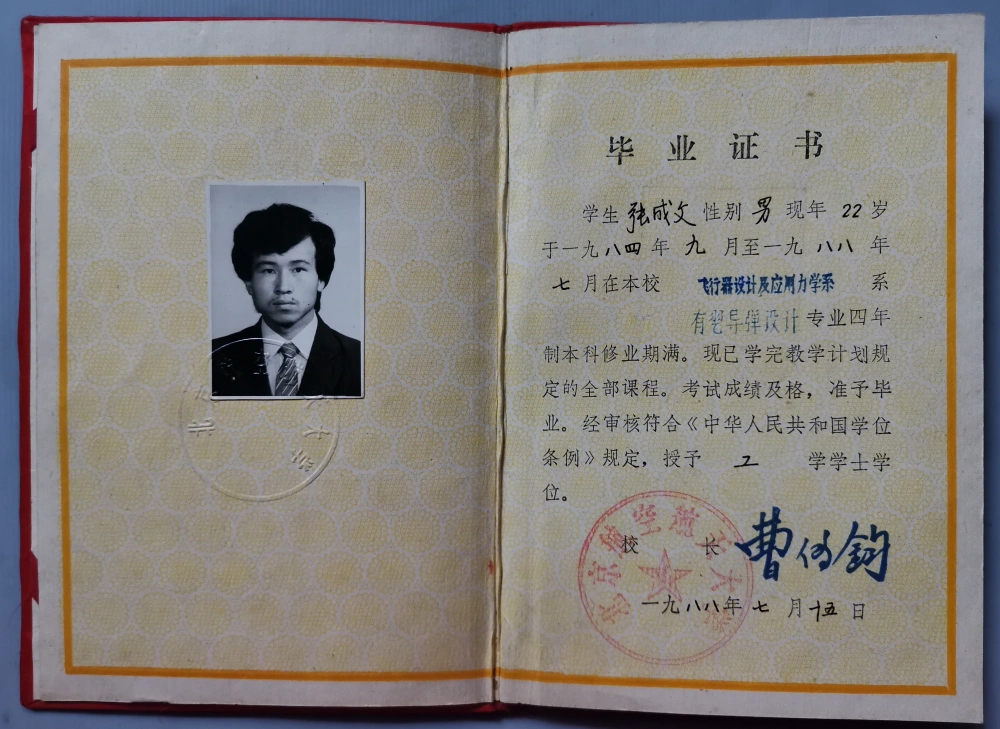 毕业证书
学生 张成文 性别 男 现年 22 岁
于一九八四年 九 月至一九八八 年
七 月在本校 飞行器设计及应用力学系 系
有翼导弹设计 专业四年
制本科修业期满。现已学完教学计划规
定的全部课程。考试成绩及格，准予毕
业。经审核符合《中华人民共和国学位
条例》规定，授予 工 学学士学
位。
北京航空航天大学
校 长 曹传钧
一九八八年 七 月 十五 日